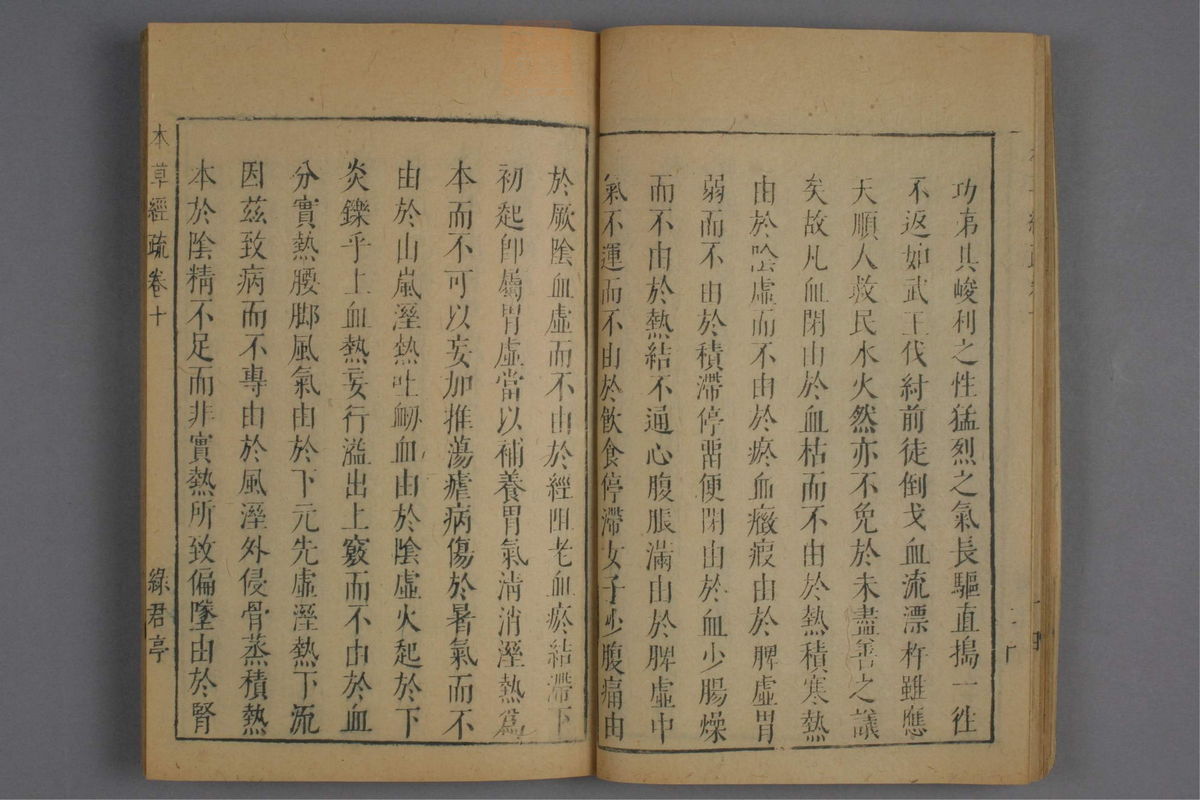 功第其峻利之性猛烈之氣長驅直搗一往
不返如武王伐紂前徒倒戈血流漂杵雖應
天順人救民水火然亦不免於未盡善之議
矣故凡血閉由於血枯而不由於熱積寒熱
由於陰虛而不由於瘀血癥瘕由於脾虛胃
弱而不由於積滯停畱便閉由於血少腸燥
而不由於熱結不通心腹脹滿由於脾虛中
氣不運而不由於飲食停滯女子少腹痛由
於厥陰血虛而不由於經阻老血瘀結滯下
初起卽屬胃虛當以補養胃氣淸消溼熱爲
本而不可以妄加推蕩瘧病傷於暑氣而不
由於山嵐溼熱吐衂血由於陰虛火起於下
炎鑠乎上血熱妄行溢出上竅而不由於血
分實熱腰脚風氣由於下元先虛溼熱下流
因茲致病而不專由於風溼外侵骨蒸積熱
本於陰精不足而非實熱所致偏墜由於腎
本草經疏 卷十
綠君亭